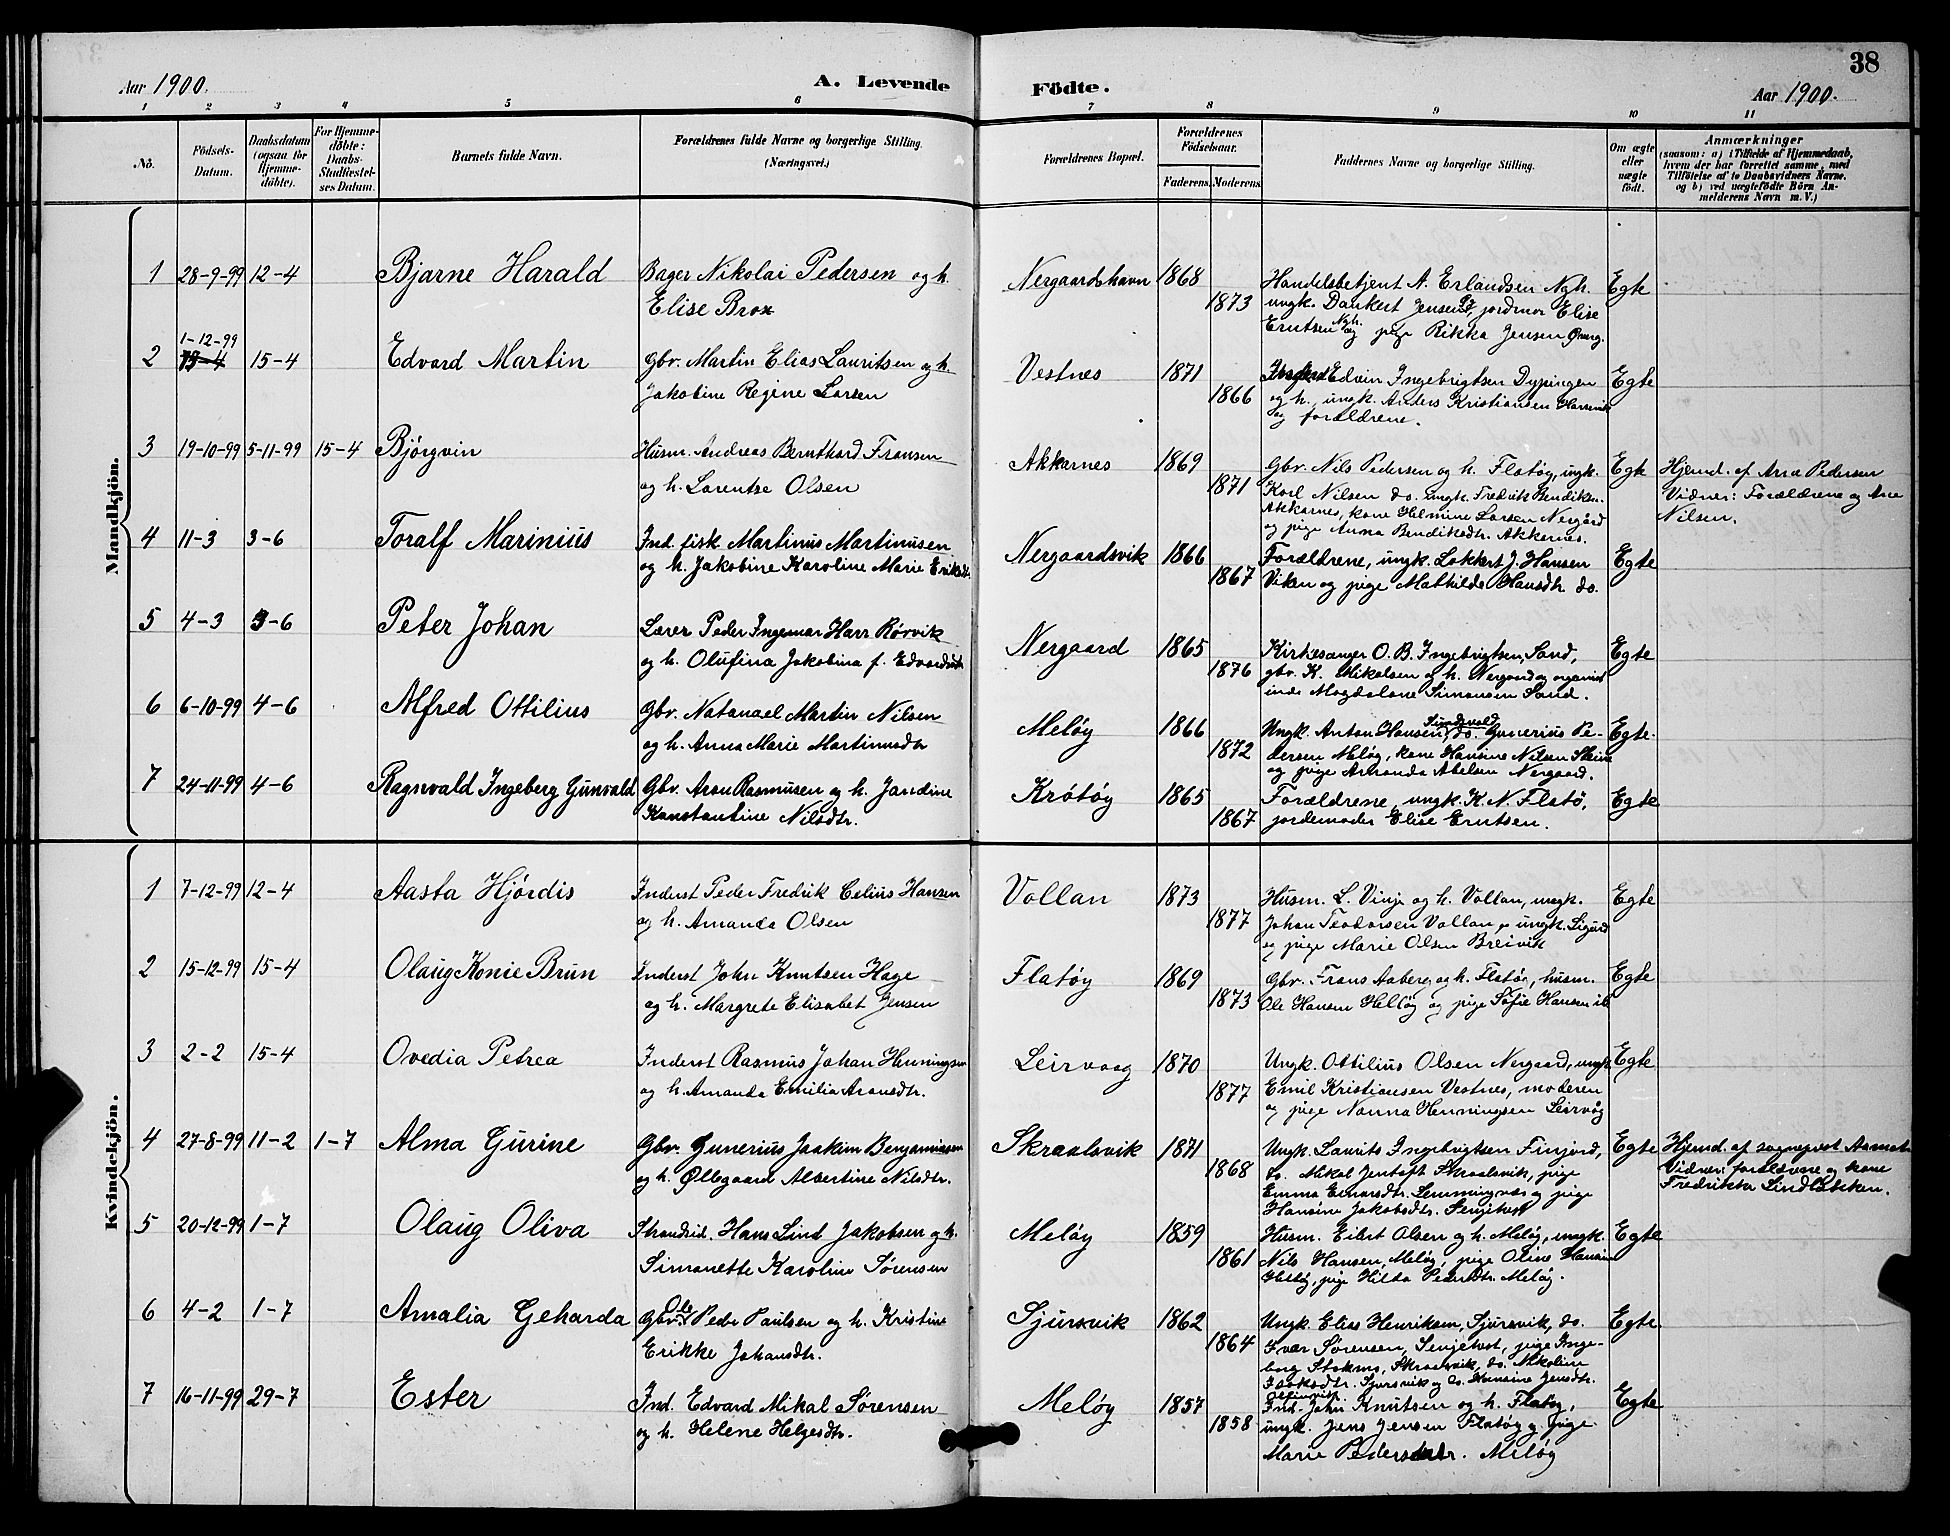 38
Aar 1900.
A. Levende Födte.
Aar 1900.
1 2 3 4 5 6 7 8 9 10 11
No.
Födsels-Datum.
Daabsdatum (ogsaa for Hjemme-döbte).
For Hjemme-döbte: Daabs-Stadfæstel-ses Datum.
Barnets fulde Navn.
Forældrenes fulde Navne og borgerlige Stilling.
(Næringsvei.)
Forældrenes Bopæl.
Forældrenes Födselsaar.
Faderens. Moderens.
Faddernes Navne og borgerlige Stilling.
Om ægte eller uægte födt.
Anmærkninger
(saasom: a) i Tilfælde af Hjemmedaab, hvem der har forrettet samme, med Tilföielse af to Daabsvidners Navne. og b) ved uægtefödte Börn An-melderens Navn m. V.)
Mandkjön.
1 28-9-99 12-4 Bjarne Harald Bager Nikolai Pedersen og h. Nergaardshavn 1868 Handelsbetjent A. Erlandsen Ngh. Egte
Elise Brox 1873 ungk. Dankert Jensen, jordmor Elise
Erntsen Ngh. og pige Rikka Jensen
2 1-12-99 15-4 Edvard Martin Gbr. Martin Elias Lauritsen og h. Vestnes 1871 Edvin Ingebrigtsen Dypingen Egte
Jakobine Regine Larsen 1866 og h., ungk. Anders Kristiansen
og forældrene.
3 19-10-99 5-11-99 15-4 Bjørgvin Husm. Andreas Bernthard Fransen Akkarnes 1869 Gbr. Nils Pedersen og h. Flatøy, ungk. Egte Hjemd. af Arne Pedersen
og h. Lorentse Olsen 1871 Karl Nilsen do. ungk. Fredrik Bendiksen Vidner: Forældrene og
Akkarnes, kone Helmine Larsen Nergård Nilsen.
og pige Anna Bendiksdtr. Akkernes.
4 11-3 3-6 Toralf Marinius Ind. fisk. Martinus Martinusen Nergaardsvik 1866 Forældrene, ungk. Lokkert J. Hansen Egte
og h. Jakobine Karoline Marie Eriksdt. 1867 Viken og pige Mathilde Hansdtr. do.
5 4-3 3-6 Peter Johan Lærer Peder Ingemar Harr Rørvik Nergaard 1865 Kirkesanger O. B. Ingebrigtsen, Sand, Egte
og h. Olufina Jakobina f. Edvardsdtr. 1876 gbr. K. Mikalsen og h. Nergaard og organist
inde Magdalene Simonsen Sand.
6 6-10-99 4-6 Alfred Ottilius Gbr. Natanael Martin Nilsen Meløy 1866 Ungk. Anton Hansen, do. Gunerius Pe- Egte.
og h. Anna Marie Martinusdtr 1872 dersen Meløy, kone Hansine Nilsen
og pige Amanda Abelsen Nergaard.
7 24-11-99 4-6 Ragnvald Ingeberg Gunvald Gbr. Aron Rasmusen og h. Jandine Krøtøy 1865 Forældrene, ungk. K. N. Flatø, Egte
Konstantine Nilsdtr. 1867 jordemoder Elise Erntsen.
Kvindekjön.
1 7-12-99 12-4 Aasta Hjórdis Inderst Peder Fredrik Celius Hansen Vollan 1873 Husm. L. Vinje og h. Vollan, ungk. Egte
og h. Amanda Olsen 1877 Johan Teodorsen Vollan, ungk. Sigurd
og pige Marie Olsen Breivik
2 15-12-99 15-4 Olaug Konie Brun Inderst John Knutsen Hage Flatøy 1869 Gbr. Frans Aaberg og h. Flatøy, husm. Egte
og h. Margrete Elisabet Jensen 1873 Ole Hansen Meløy og pige Sofie Hansen ib.
3 2-2 15-4 Ovedia Petrea Inderst Rasmus Johan Henningsen Leirvaag 1870 Ungk. Ottilius Olsen Nergaard, ungk. Egte
og h. Amanda Emilia Aronsdtr. 1877 Emil Kristiansen Vestnes, moderen
og pige Nanna Henningsen Leirvåg
4 27-8-99 11-2 1-7 Alma Gurine Gbr. Gunerius Joakim Benjaminsen Skraalsvik 1871 Ungk. Laurits Ingebrigtsen Finjord, Egte Hjemd. af sognepræst
og h. Øllegaard Albertine Nilsdtr. 1868 do. Mikal Jentoft Skraalsvik, pige Vidner: forældrene og kone
Emma Einarsdtr. Lemmingvær og pige Fredrikka
Hansine Jakobsdtr. Senjehest
5 20-12-99 1-7 Olaug Oliva Strandsid. Hans Lind Jakobsen og h. Meløy 1859 Husm. Eilert Olsen og h. Meløy, ungk. Egte
Simonette Karoline Sørensen 1861 Nils Hansen, Meløy, pige Oline Hansen
pige Hilda Pedersdtr. Meløy.
6 4-2 1-7 Amalia Geharda Gbr. Ole Peder Paulsen og h. Kristine Sjursvik 1862 Ungk. Elias Henriksen, Sjursvik, do. Egte
Erikke Johansdtr. 1864 Ivar Sørensen, Senjehest, pige Inge-
borg Stokmo, Skraalsvik, do. Nikoline
Isaksdtr. Sjursvik og do. Hansine Jensdtr.
7 16-11-99 29-7 Ester Ind. Edvard Mikal Sørensen Meløy 1857 Ind. John Knutsen og h. Flatøy, Egte
og h. Helene Helgesdtr. 1858 ungk. Jens Jensen Flatøy og pige
Marie Pedersdtr. Meløy